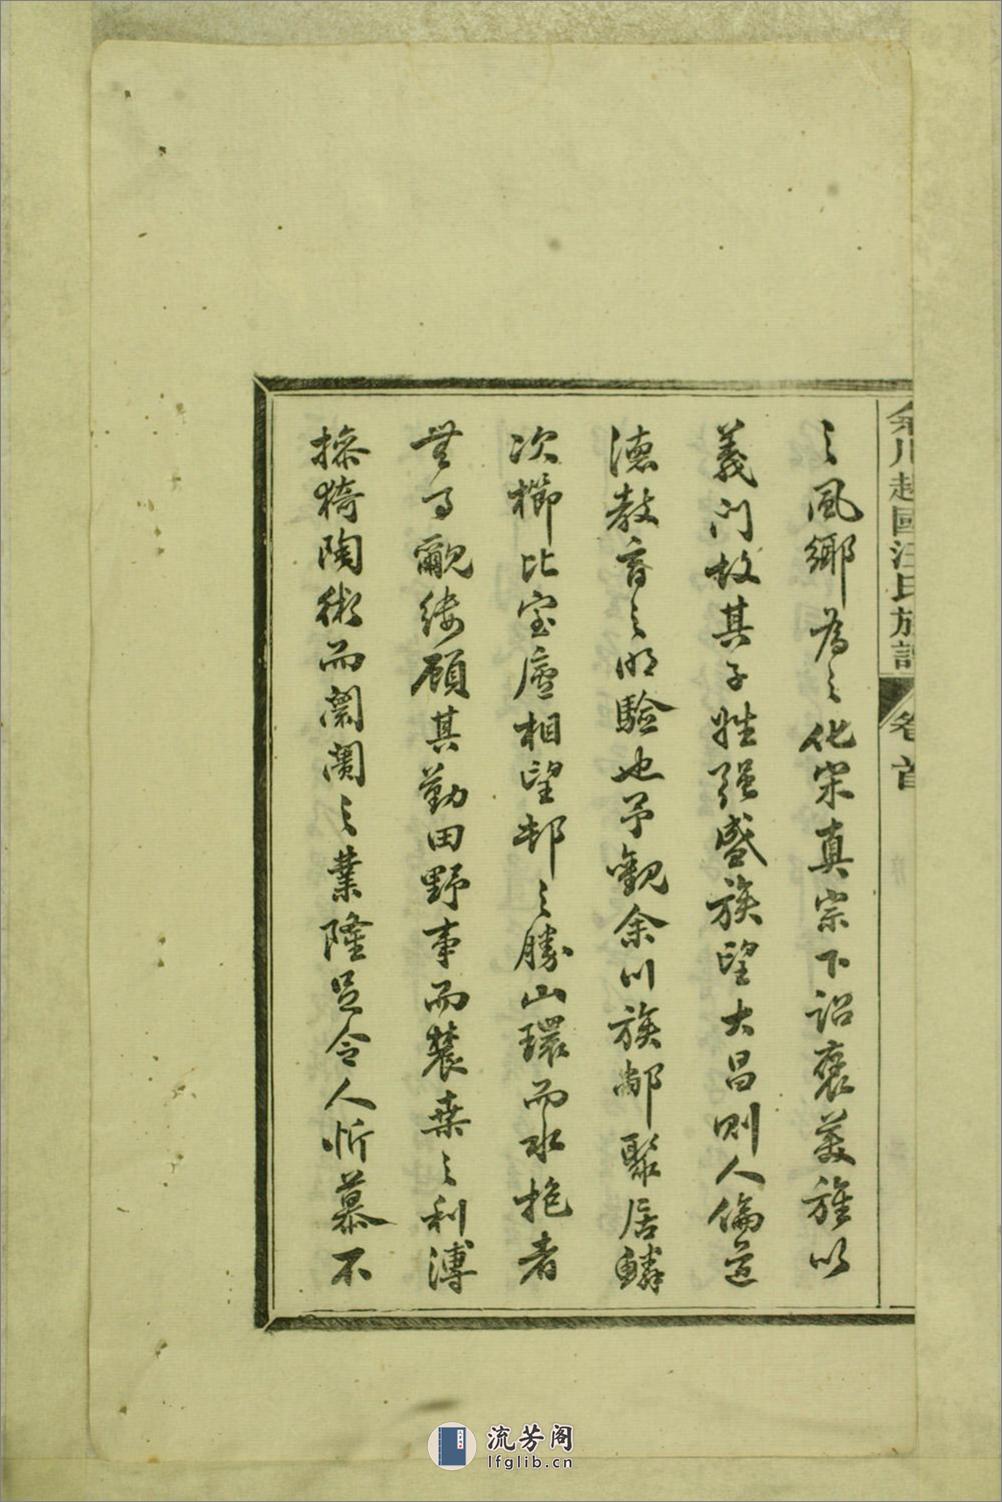 余川越國汪氏族譜 卷首
之風鄉爲之化宋真宗下詔褒美旌以
義門故其子姓强盛族望大昌則人倫道
德教育之明驗也予觀余川族鄰聚居鱗
次櫛比室廬相望邨之勝山環而水抱者
無可覼縷顧其勤田野事而農桑之利溥
操猗陶術而闤闠之業隆足令人忻慕不
流芳阁
lfglib.cn